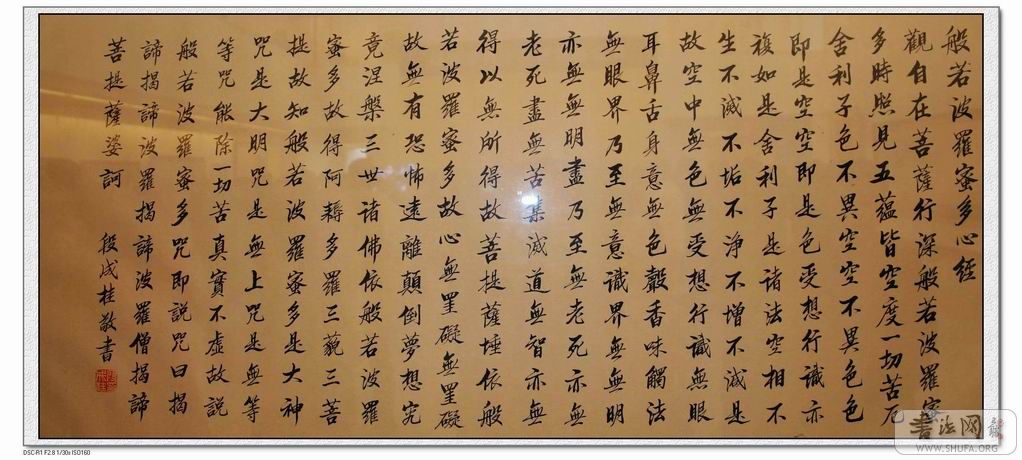 般若波羅蜜多心經
觀自在菩薩行深般若波羅蜜
多時照見五蘊皆空度一切苦厄
舍利子色不異空空不異色色
即是空空即是色受想行識亦
複如是舍利子是諸法空相不
生不滅不垢不淨不增不減是
故空中無色無受想行識無眼
耳鼻舌身意無色聲香味觸法
無眼界乃至無意識界無無明
亦無無明盡乃至無老死亦無
老死盡無苦集滅道無智亦無
得以無所得故菩提薩埵依般
若波羅蜜多故心無罣礙無罣礙
故無有恐怖遠離顛倒夢想究
竟涅槃三世諸佛依般若波羅
蜜多故得阿耨多羅三藐三菩
提故知般若波羅蜜多是大神
咒是大明咒是無上咒是無等
等咒能除一切苦真實不虛故說
般若波羅蜜多咒即說咒曰揭
諦揭諦波羅揭諦波羅僧揭諦
菩提薩婆訶 段成桂敬書
书法网
WWW.SHUFA.ORG
DSC-R1 F2.8 1/30s ISO160